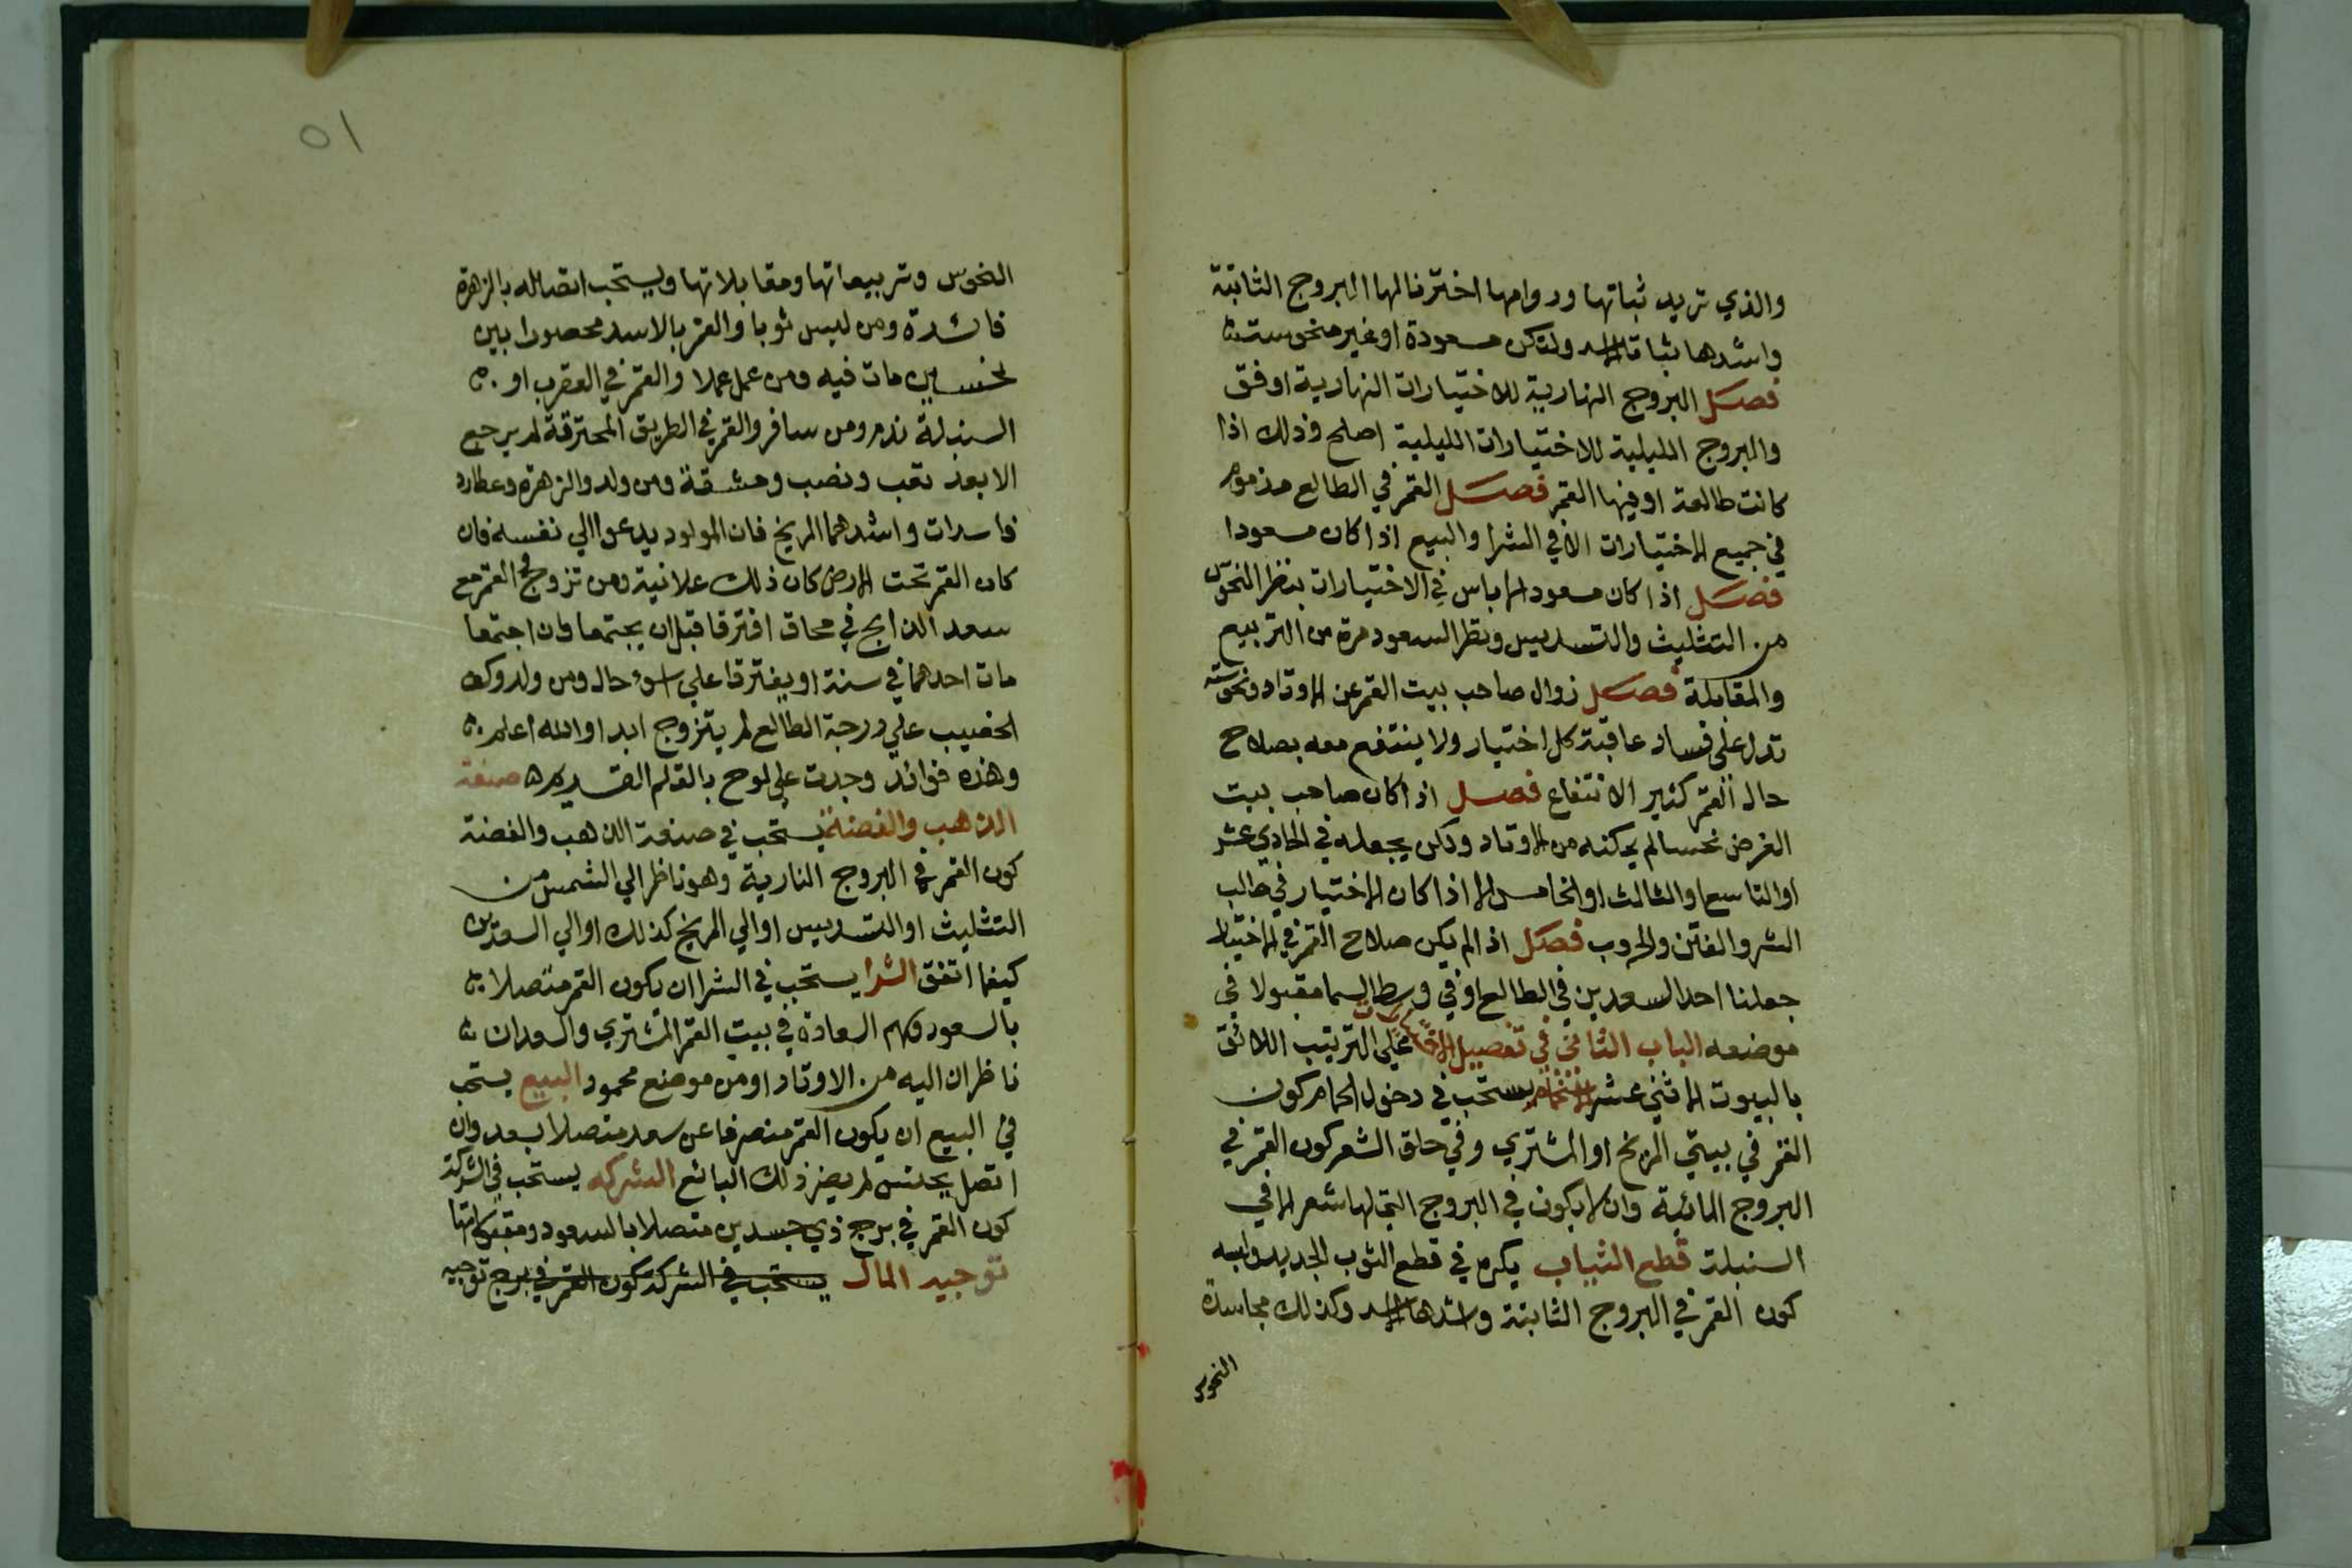 والذي تريد ثباتها ودوامها اخترنا لها البروج الثابتة
واشدها ثباتا الاسد ولتكن مسعودة او غير منحوسة
فصل البروج النهارية للاختيارات النهارية اوفق
والبروج الليلية للاختيارات الليلية اصلح وذلك اذا
كانت طالعة او فيها القمر فصل القمر في الطالع مذموم
في جميع الاختيارات الا في الشرا والبيع اذا كان مسعودا
فصل اذا كان مسعودا لاباس في الاختيارات بنظر النحوس
من التثليث والتسديس ونظر السعود مرة من التربيع
والمقابلة فصل زوال صاحب بيت القمر عن الاوتاد ونحوسته
تدل على فساد عاقبة كل اختيار ولا ينتفع معه بصلاح
حال القمر كثير الانتفاع فصل اذا كان صاحب بيت
الغرض نحسا لم يمكنه من الاوتاد ولكن يجعله في الحادي عشر
او التاسع او الثالث او الخامس الا اذا كان الاختيار في طالب
الشر والفتن والحروب فصل اذا لم يكن صلاح القمر في الاختيار
جعلنا احد السعدين في الطالع او في وسط السما مقبولا في
موضعه الباب الثاني في تفصيل الاختيارات علي الترتيب اللائق
بالبيوت الاثني عشر الاستحمام يستحب في دخول الحمام كون
القمر في بيتي المريخ او المشتري وفي حلق الشعر كون القمر في
البروج المائية وان لا يكون في البروج التي لها شعر الا في
السنبلة قطع الثياب يكره في قطع الثوب الجديد ولبسه
كون القمر في البروج الثابتة واشدها الاسد وكذلك مجاسدة
النحوس
٥١
النحوس وتربيعاتها ومقابلاتها ويستحب اتصاله بالزهرة
فائدة ومن لبس ثوبا والقمر بالاسد محصورا بين
نحسين مات فيه ومن عمل عملا والقمر في العقرب او
السنبلة ندم ومن سافر والقمر في الطريق المحترقة لم يرجع
الا بعد تعب ونصب ومشقة ومن ولد والزهرة وعطارد
فاسدات واشدهما المريخ فان المولود يدعوا الي نفسه فان
كان القمر تحت الارض كان ذلك علانية ومن تزوج والقمر مع
سعد الذابح في محاق افترقا قبل ان يجتمعا وان اجتمعا
مات احدهما في سنة او يفترقا علي اسوء حال ومن ولد وكف
الخضيب علي درجة الطالع لم يتزوج ابدا والله اعلم
وهذه فوائد وجدت علي لوح بالقلم القديم صنعة
الذهب والفضة يستحب في صنعة الذهب والفضة
كون القمر في البروج النارية وهو ناظر الي الشمس من
التثليث او التسديس او الي المريخ كذلك او الي السعدين
كيفما اتفق الشرا يستحب في الشرا ان يكون القمر متصلا
بالسعود وسهم السعادة في بيت القمر المشتري والسعدان
ناظران اليه من الاوتاد او من موضع محمود البيع يستحب
في البيع ان يكون القمر منصرفا عن سعد متصلا بسعد وان
اتصل بنحس لم يضر ذلك البائع الشركه يستحب في الشركة
كون القمر في برج ذي جسدين متصلا بالسعود ومقبولا منها
توجيه المال يستحب في الشركة كون القمر في برج توجيه